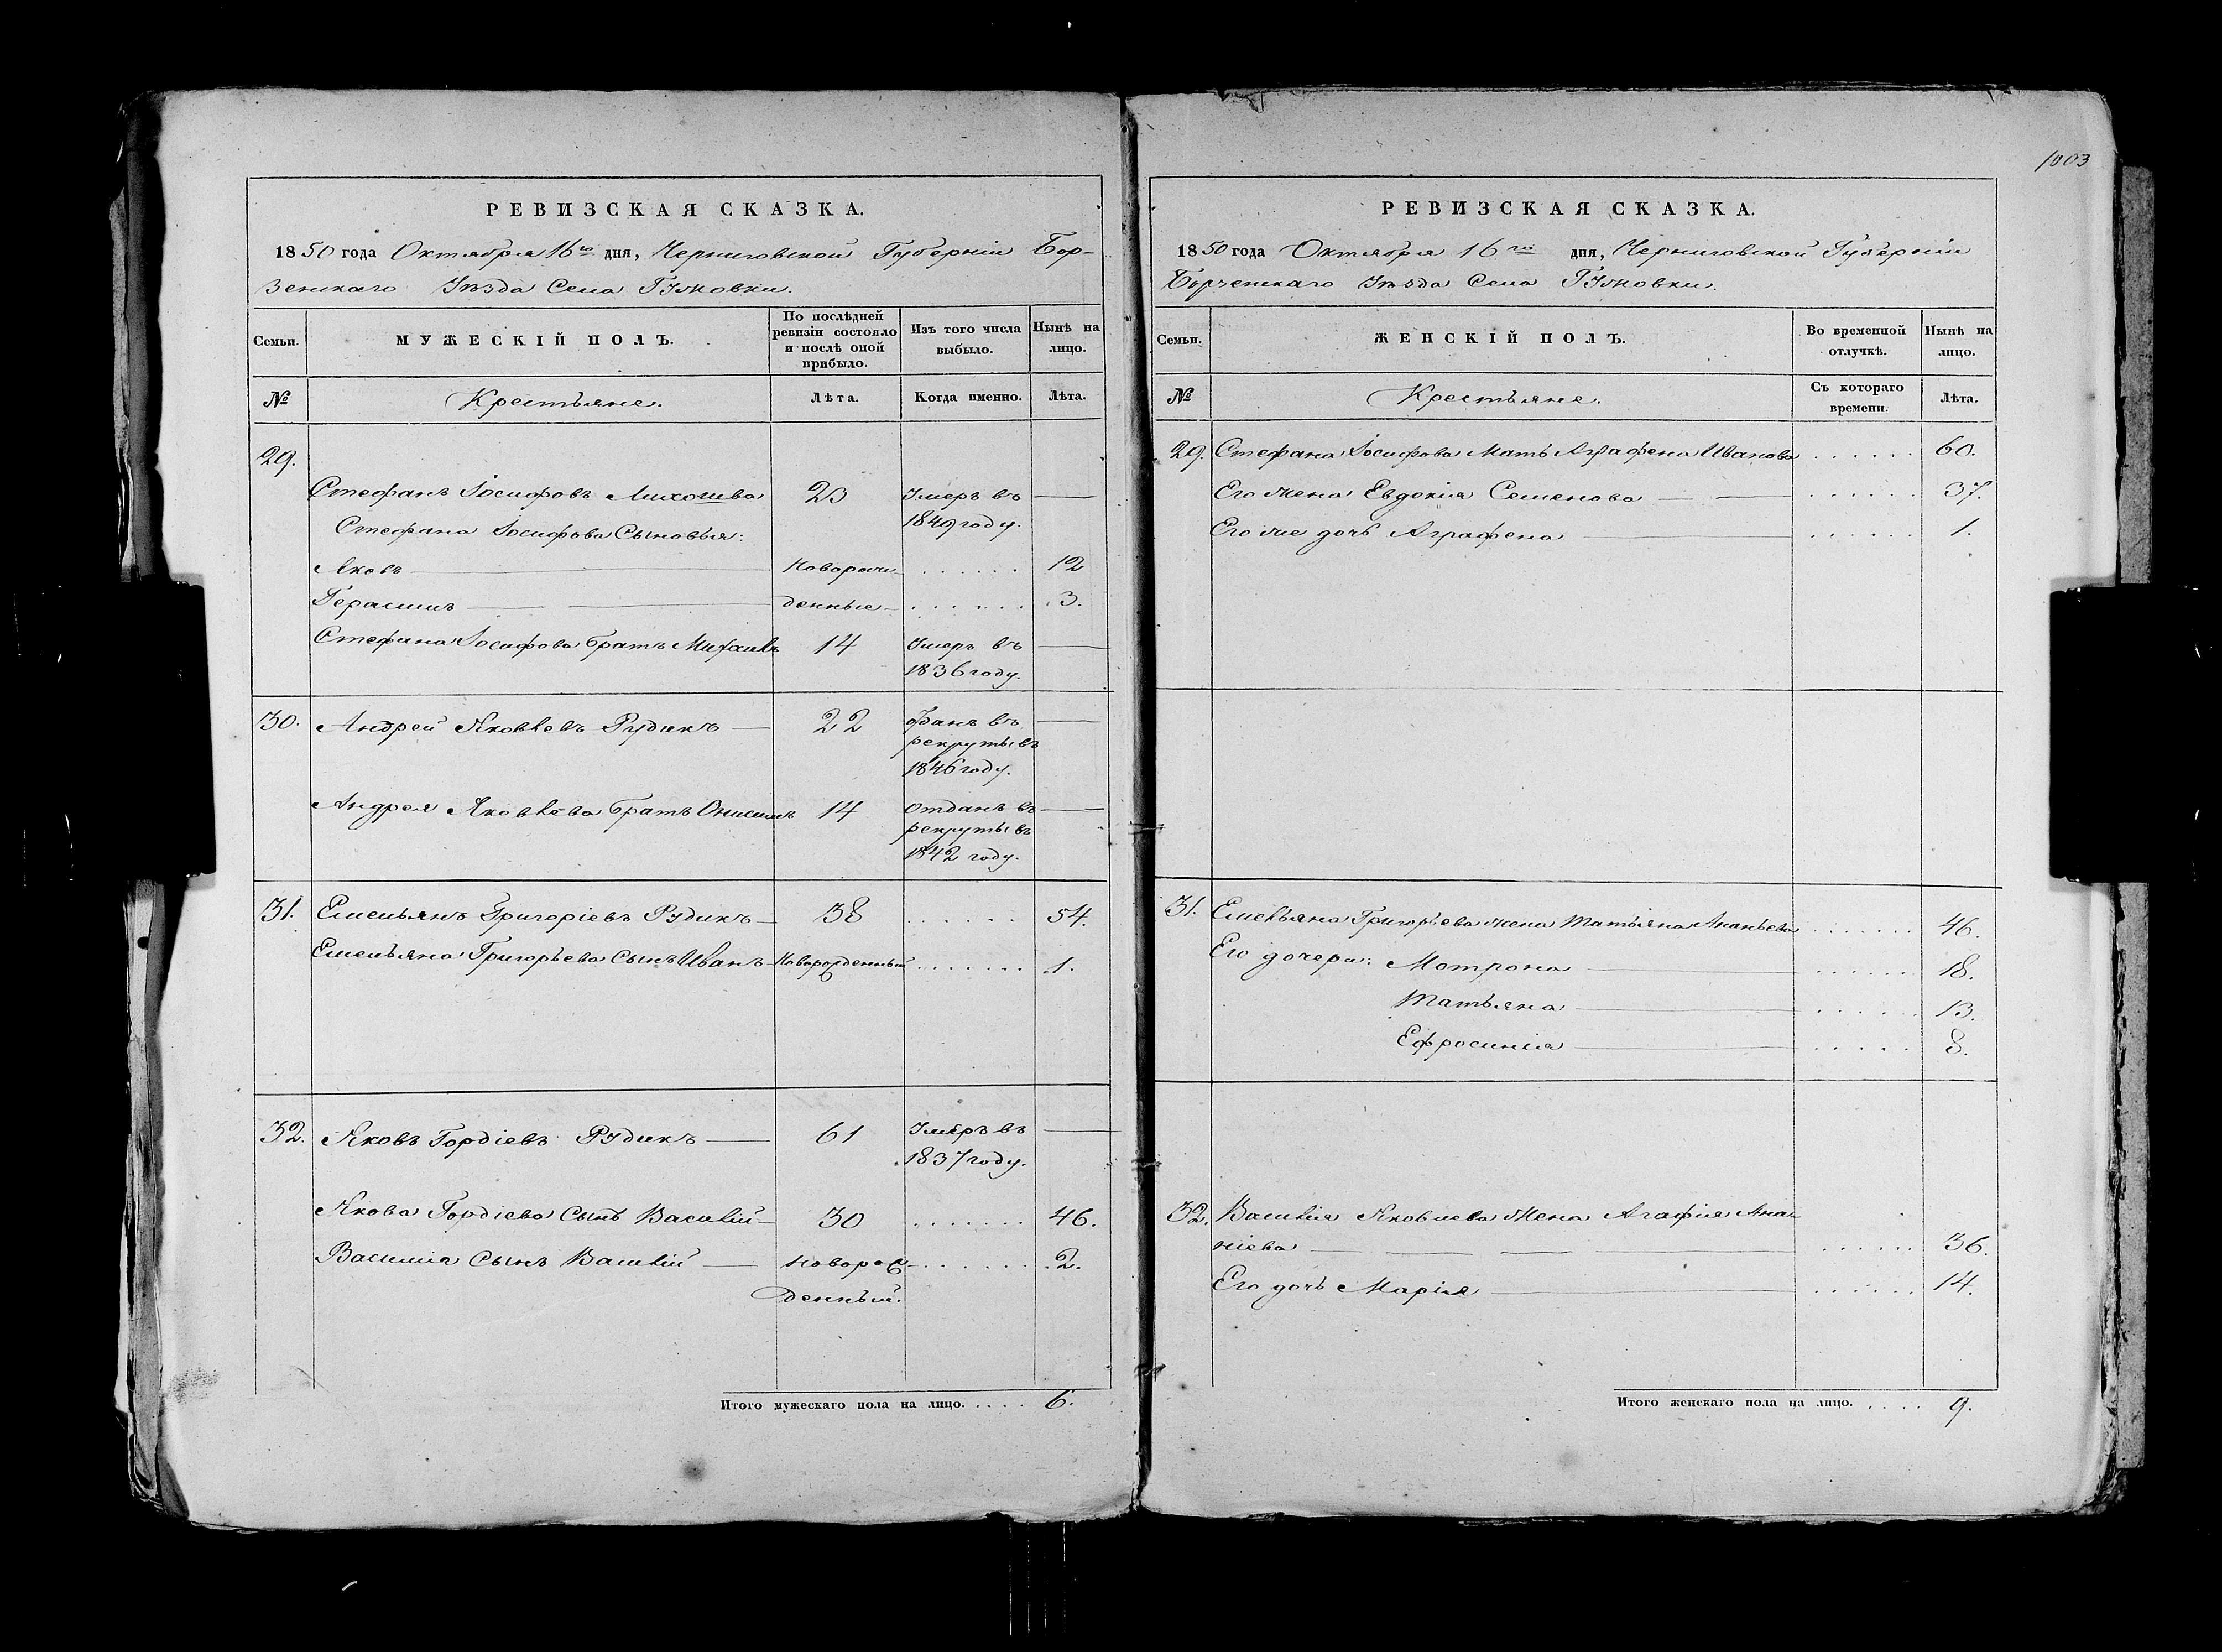 1003
РЕВИЗСКАЯ СКАЗКА.
1850 года Октября 16го дня, Черниговской Губерніи Бор-
зенскаго Уѣзда Села
Семьи. МУЖЕСКІЙ ПОЛЪ. По послѣдней ревизіи состояло и послѣ оной прибыло. Изъ того числа выбыло. Нынѣ на лицо.
№ Крестьяне. Лѣта. Когда именно. Лѣта.
29.
Стефанъ Іосифовъ 23 Умеръ въ —
Стефана Іосифова Сыновья: 1849 году.
Яковъ — Новорож- . . . . . . 12
Герасимъ — — денные — . . . . . . 3.
Стефана Іосифова братъ Михаилъ 14 Умеръ въ —
1836 году.
30. Андрей Яковлевъ Рудикъ — 22 Отданъ въ —
рекруты въ
1846 году.
Андрея Яковлева братъ Онисимъ 14 Отданъ въ —
рекруты въ
1842 году.
31. Емельянъ Григоріевъ Рудикъ — 38 . . . . . . 54.
Емельяна Григорьева Сынъ Иванъ Новорожденный . . . . . . . 1.
32. Яковъ Гордіевъ Рудикъ — 61 Умеръ въ —
1837 году.
Якова Гордіева Сынъ Василій — 30 . . . . . . . 46.
Василія Сынъ Василій — новорож- . . . . . . . 2.
денный.
Итого мужескаго пола на лицо. . . . . 6.
РЕВИЗСКАЯ СКАЗКА.
1850 года Октября 16го дня, Черниговской Губерніи
Борзенскаго Уѣзда Села
Семьи. ЖЕНСКІЙ ПОЛЪ. Во временной отлучкѣ. Нынѣ на лицо.
№ Крестьяне. Съ котораго времени. Лѣта.
29. Стефана Іосифова Мать Аграфена Иванова . . . . . . 60.
Его жена Евдокія Семенова — — . . . . . . 37.
Его же дочь Аграфена — . . . . . . 1.
31. Емельяна Григорьева жена Татьяна Ананьева . . . . . . . 46.
Его дочери: Мотрона — . . . . . . 18.
Татьяна — . . . . . . 13.
Ефросинія — . . . . . 8.
32. Василія Яковлева Жена Агафія Ана-
ніева — — . . . . . . 36.
Его дочь Марія — . . . . . . 14.
Итого женскаго пола на лицо. . . . . 9.